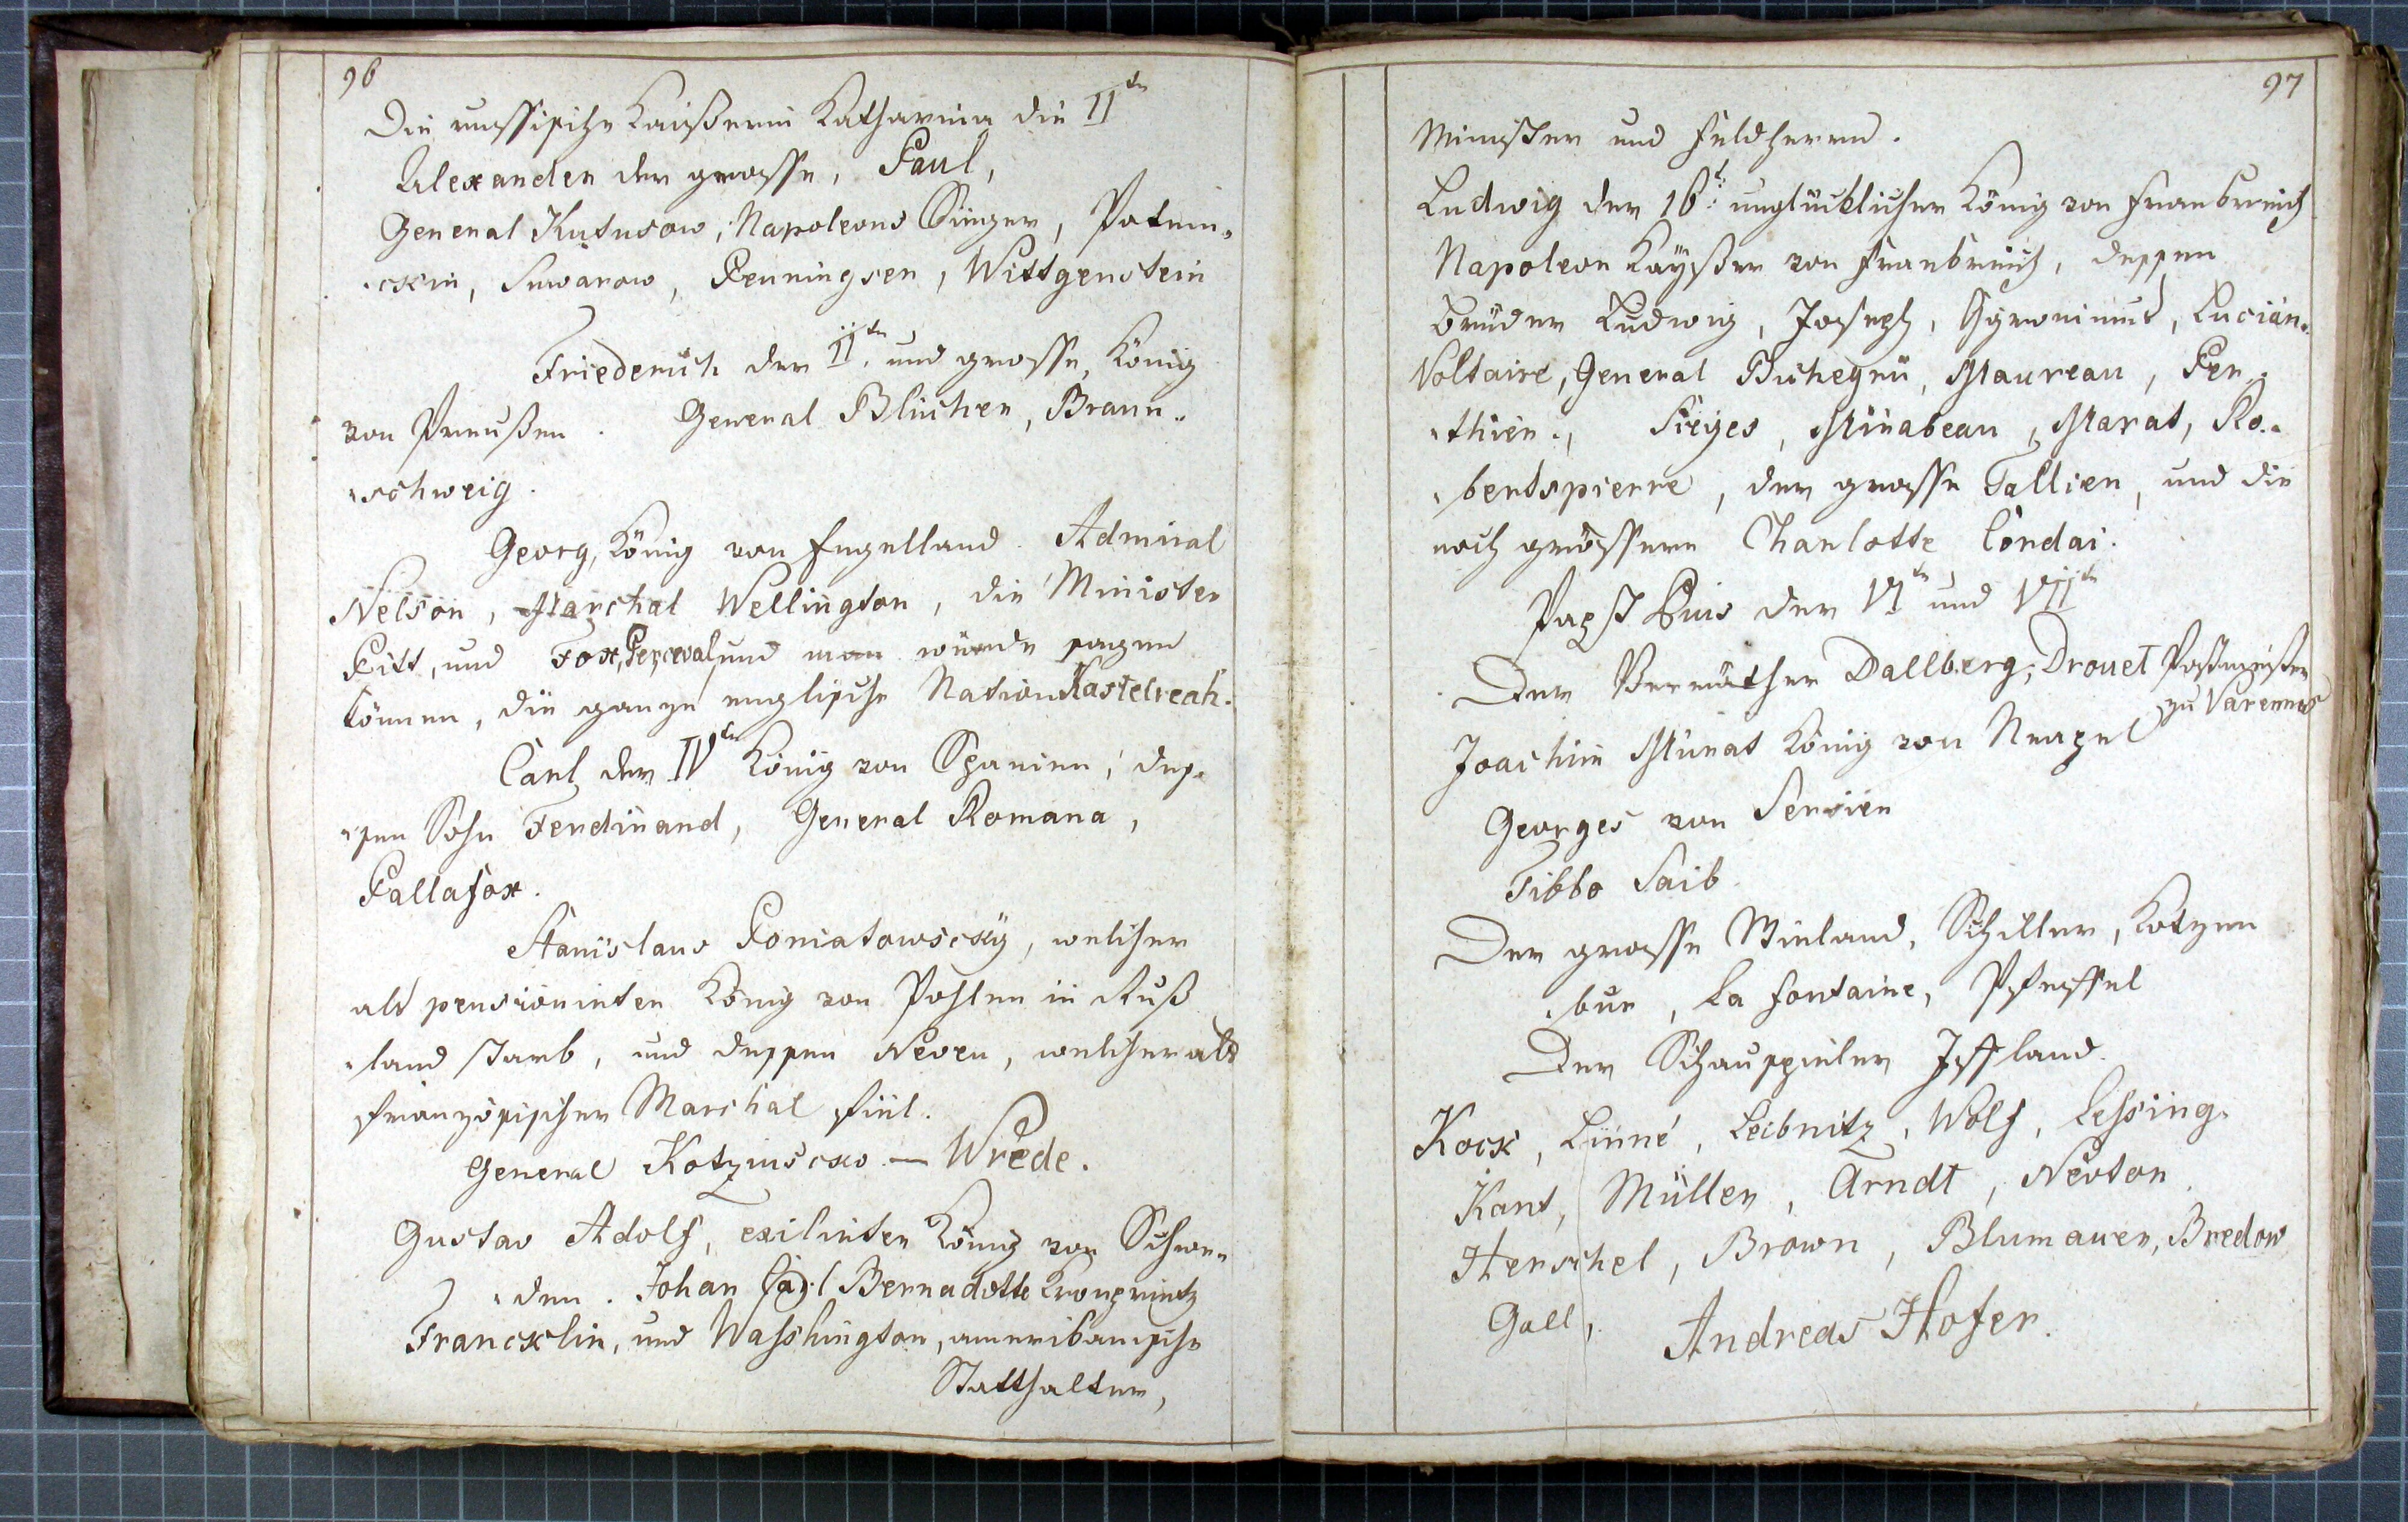 96
Die russische Kaißerin Katharina die II.te
Alexander der grosse, Paul,
General Kutusow, Napoleons Sieger, Potem„
„ckin, Suwarow, Benningsen, Wittgenstein
Friederich der II.te und grosse, König
von Preußen. General Blücher, Braun„
„schweig.
Georg, König von Engelland. Admiral
Nelson, Marschal Wellington, die Minister
Pitt, und Fox, Perceval, und man würde sagen
können, die ganze englische Nation Kastelreah.
Carl der IV.te König von Spanien, des„
„sen Sohn Ferdinand, General Romana,
Pallafox.
Stanislaus Poniatowsckÿ, welcher
als pensionirter König von Pohlen in Ruß
„land starb, und dessen Neveu, welcher als
französischer Marschal fiel.
General Kotziuscko. — Wrede.
Gustav Adolf, exilirter König von Schwe„
„den. Johan Carl Bernadotte Kronprintz
Francklin, und Wasshington, amerikanische
Statthalter,
97
Minister und Feldherrn.
Ludwig der 16.t: unglücklicher König von Frankreich
Napoleon Kaÿßer von Frankreich, dessen
Brüder Ludwig, Joseph, Hÿronimus, Lucian.
Voltaire, General Bichegrü, Maureau, Ber„
„thier., Siéÿes, Mirabeau, Marat, Ro„
„bertspierre, der grosse Tallien, und die
noch grössere Charlotte Cordai.
Papst Pius der VI.te und VII.te
Der Verräther Dallberg, Drouet Postmeister
zu Varennes
Joachim Murat König von Neapel
Georges von Servien
Tibbo Saib
Der grosse Wieland, Schiller, Kotzen
„bue, La Fontaine, Pfeffel
Der Schauspieler Iffland.
Kock, Linné, Leibnitz, Wolf, Lessing.
Kant, Müller, Arndt, Nevton
Herschel, Brown, Blumauer, Bredow
Gall, Andreas Hofer.